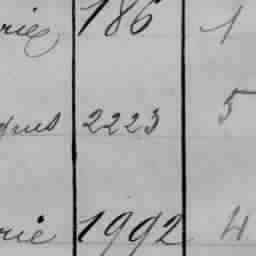 rie 186 1
ques 2223 5
rie 1992 4